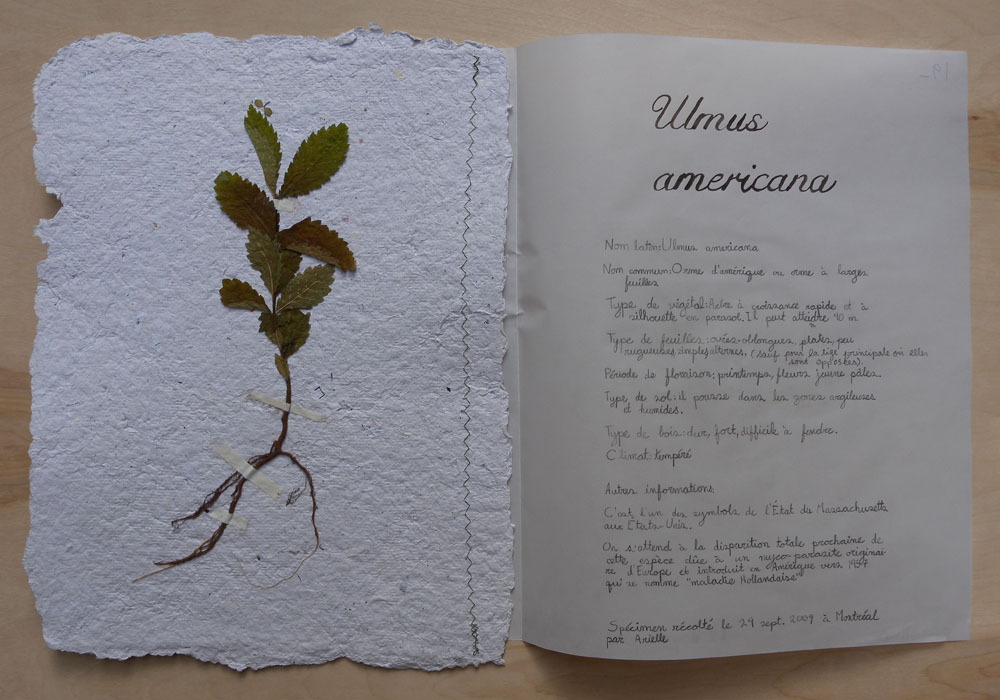 Ulmus
americana
Nom latin: Ulmus americana
Nom commun: Orme d'amérique ou orme à larges
feuilles
Type de végétal: Arbre à croissance rapide et à
silhouette en parasol. Il peut atteidre 40 m
Type de feuilles: ovées-oblongues, plates, peu
rugueuses, simples, alternes. (sauf pour la tige principale où elles
sont opposées).
Période de floraison: printemps, fleurs jaune pâles.
Type de sol: il pousse dans les zones argileuses
et humides.
Type de bois: dur, fort, difficile à fendre.
Climat: tempéré
Autres informations:
C'est l'un des symbols de l'État du Massachusetts
aux États-Unis.
On s'attend à la disparition totale prochaine de
cette espèce dûe à un myco-parasite originai-
re d'Europe et introduit en Amérique vers
qui se nomme "maladie Hollandaise"
Spécimen récolté le 29 sept. 2009 à Montréal
par Arielle